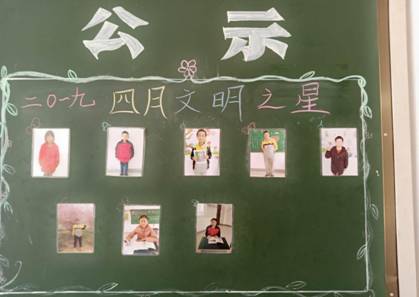 公示
二〇一九 四月文明之星